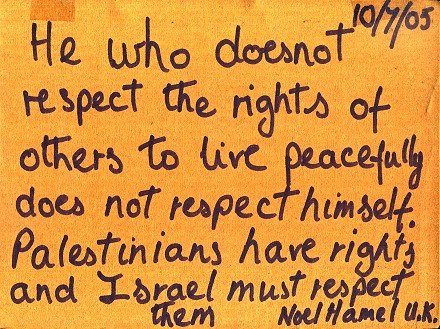 10/7/05
He who doesnot
respect the rights of
others to live peacefully
does not respect himself.
Palestinians have rights
and Israel must respect
them Noel Hamel U.K.